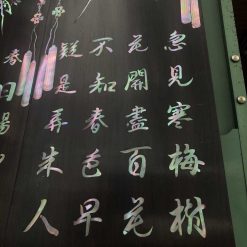 急見寒梅樹
花開盡百花
不知春色早
疑是弄朱人
春